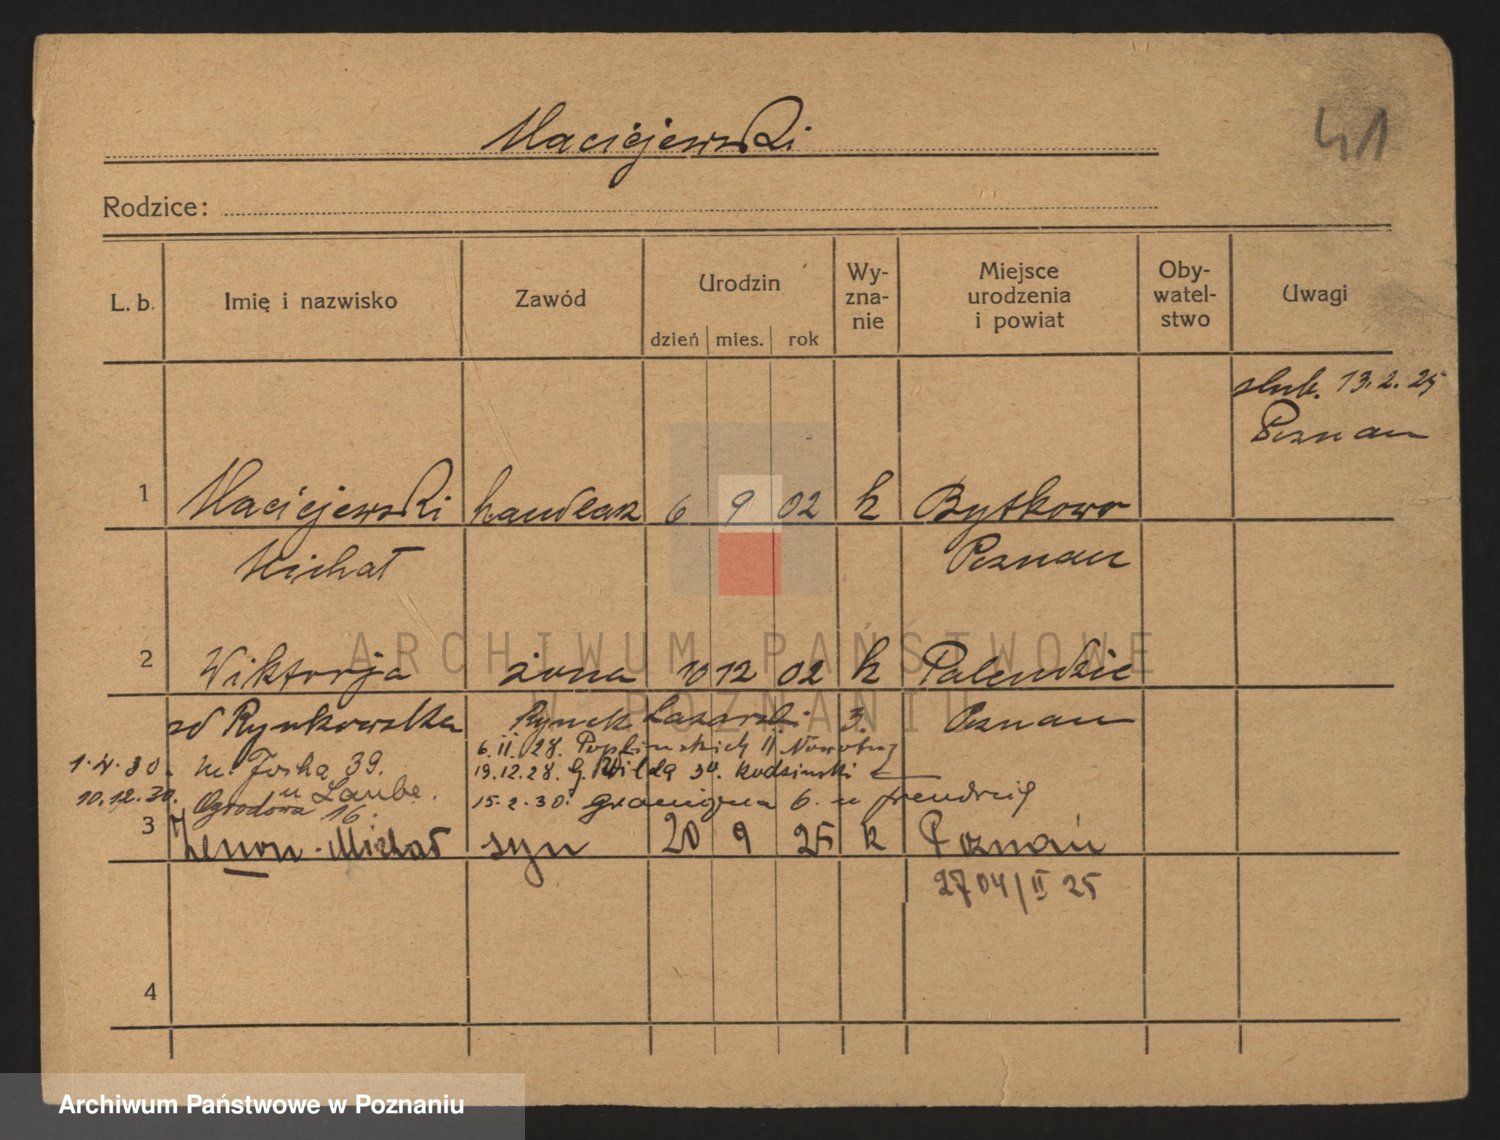 Maciejewski
41
Rodzice:
L. b. Imię i nazwisko Zawód Urodzin dzień mies. rok Wy-zna-nie Miejsce urodzenia i powiat Oby-watel-stwo Uwagi
slub. 13.2.25
Poznań
1 Maciejewski handlarz 6 9 02 k Bytkowo
Michał Poznań
2 Wiktorja żona 10 12 02 k Palendzie
zd Rynkowska Rynek Lazarski 3. Poznań
6.II.28. Poplinskich 11 Nowotny
1.4.30. m. Focha 39. 19.12.28. G. Wilda 30. Kodzinski
u Laube.
10.12.30. Ogrodowa 16. 15.2.30. graniczna 6. u
3 Zenon-Michał syn 20 9 25 k Poznań
2704/II 25
4
ARCHIWUM PAŃSTWOWE
W POZNANIU
Archiwum Państwowe w Poznaniu